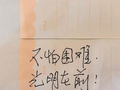 不怕困难.
光明在前!